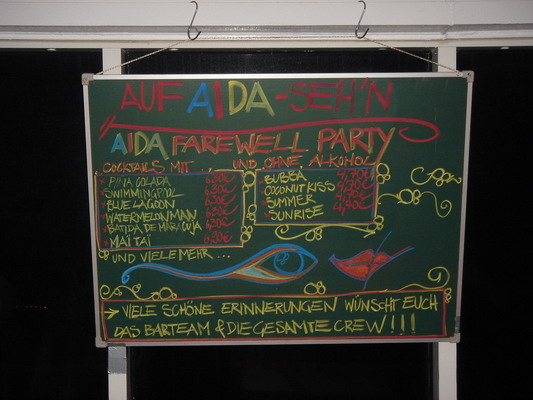 AUF AIDA-SEH'N
AIDA FAREWELL PARTY
COCKTAILS MIT UND OHNE ALKOHOL
PINA COLADA
SWIMMINGPOOL 6,30€
BLUE LAGOON
WATERMELONMAN 6,30€
BATIDA DE MARACUJA 6,30€
MAI TAI 6,20€
UND VIELE MEHR...
BUBBA 4,70€
COCONUT KISS 4,70€
SUMMER
SUNRISE 4,40€
→ VIELE SCHÖNE ERINNERUNGEN WÜNSCHT EUCH
DAS BARTEAM & DIE GESAMTE CREW!!!